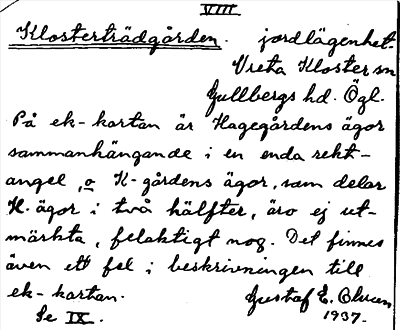 VIII
Klosterträdgården. jordlägenhet.
Vreta Kloster sn
Gullbergs hd. Ögl.
På ek-kartan är Hagegårdens ägor
sammanhängande i en enda rekt-
angel, o K-gårdens ägor, som delar
H. ägor i två hälfter, äro ej ut-
märkta, felaktigt nog. Det finnes
även ett fel i beskrivningen till
ek-kartan. Gustaf E.
Se IX. 1937.